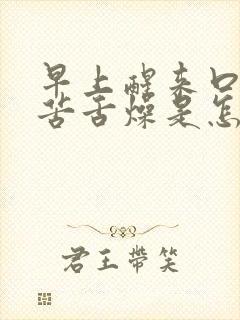 早上醒来口
苦舌燥是怎
君王带笑